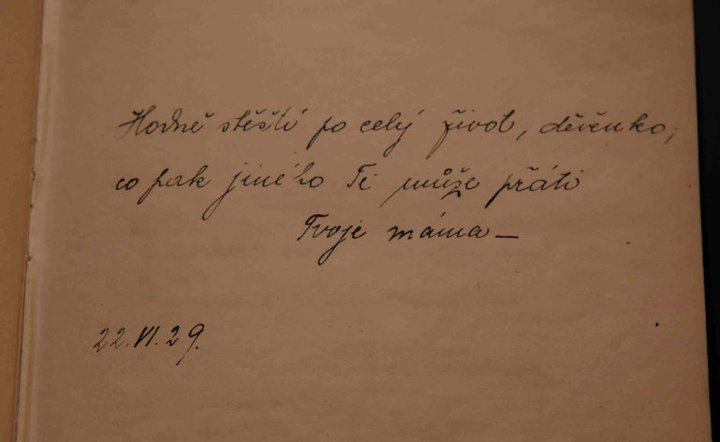 Hodně štěstí po celý život, děvenko,
co pak jiného Ti může přáti
Tvoje máma –
22. VI. 29.